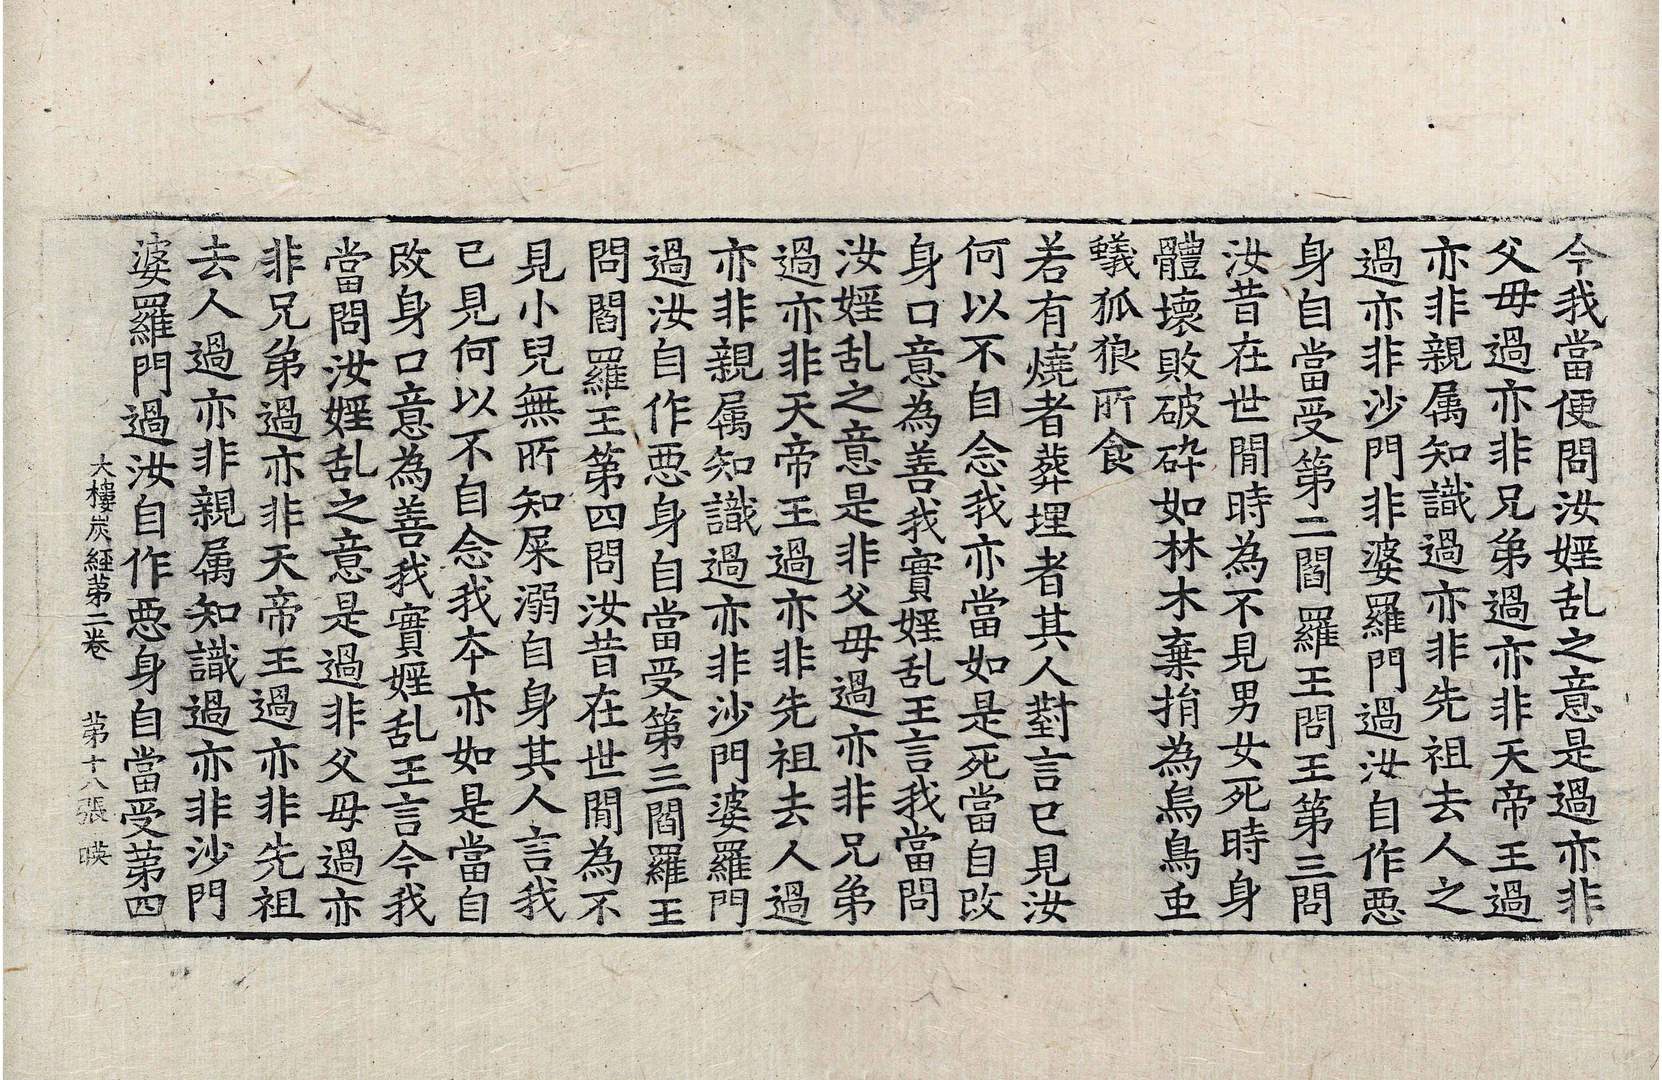 今我當便問汝婬乱之意是過亦非
父母過亦非兄弟過亦非天帝王過
亦非親属知識過亦非先祖去人之
過亦非沙門非婆羅門過汝自作悪
身自當受第二閻羅王問王第三問
汝昔在世閒時為不見男女死時身
體壞敗破碎如林木棄捐為烏鳥虫
蟻狐狼所食
若有燒者葬埋者其人對言已見汝
何以不自念我亦當如是死當自改
身口意為善我實婬乱王言我當問
汝婬乱之意是非父母過亦非兄弟
過亦非天帝王過亦非先祖去人過
亦非親属知識過亦非沙門婆羅門
過汝自作悪身自當受第三閻羅王
問閻羅王第四問汝昔在世閒為不
見小兒無所知屎溺自身其人言我
已見何以不自念我夲亦如是當自
改身口意為善我實婬乱王言今我
當問汝婬乱之意是過非父母過亦
非兄弟過亦非天帝王過亦非先祖
去人過亦非親属知識過亦非沙門
婆羅門過汝自作悪身自當受第四
大樓炭経第二卷 第十八張 暎